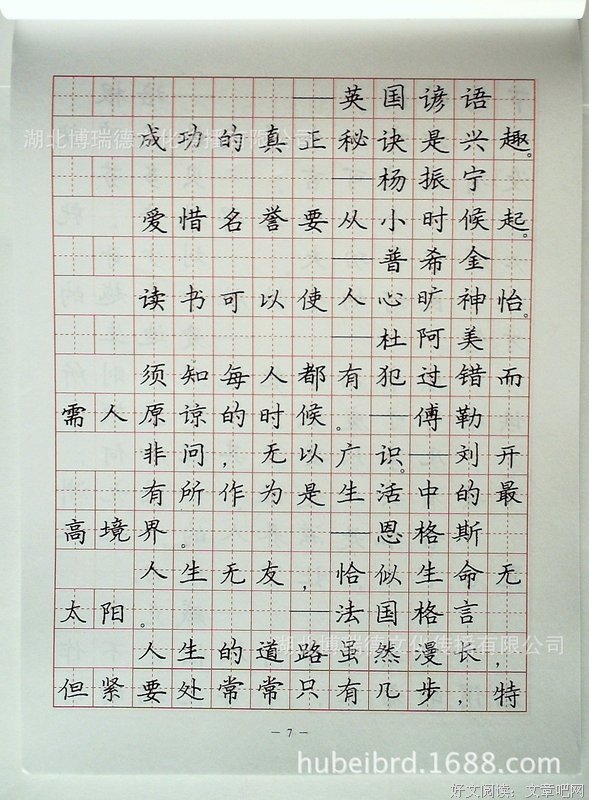 ——英国谚语
成功的真正秘诀是兴趣。
——杨振宁
爱惜名誉要从小时候起。
——普希金
读书可以使人心旷神怡。
——杜阿美
须知每人都有犯过错而
需人原谅的时候。——傅勒
非问，无以广识。——刘开
有所作为是生活中的最
高境界。——恩格斯
人生无友，恰似生命无
太阳。——法国格言
人生的道路虽然漫长，
但紧要处常常只有几步，特
—7—
湖北博瑞德文化传播有限公司
湖北博瑞德文化传播有限公司
hubeibrd.1688.com
好文阅读：文章吧网